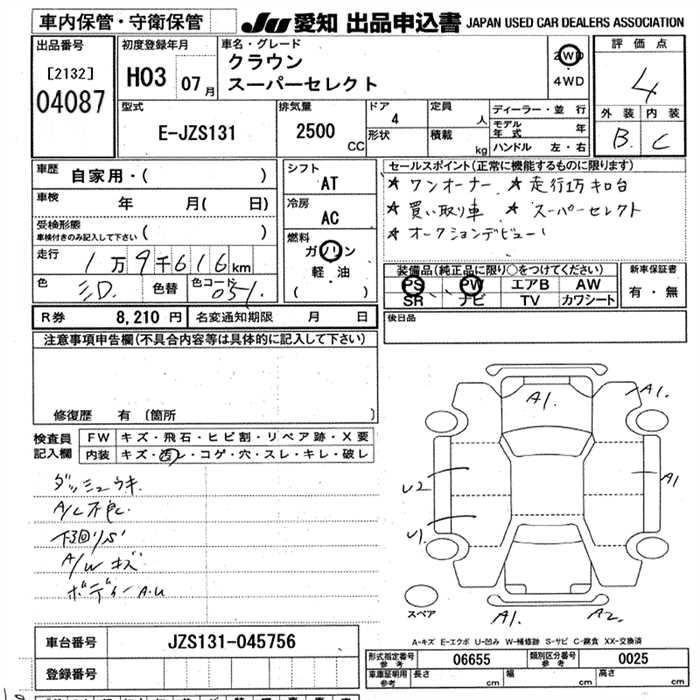 車内保管・守衛保管
JU 愛知 出品申込書 JAPAN USED CAR DEALERS ASSOCIATION
出品番号
[2132]
04087
初度登録年月
H03 07月
車名・グレード
クラウン
スーパーセレクト
2WD
4WD
評価点
4
外装 内装
B C
型式
E-JZS131
排気量
2500 CC
ドア
4
形状
定員
人
積載
kg
ディーラー・並行
モデル年式 年
ハンドル 左・右
車歴
自家用・( )
車検
年 月( 日)
受検形態
車検付きのみ記入して下さい ( )
走行
1万9千616km
色
色替
色コード
051
シフト
AT
冷房
AC
燃料
ガソリン
軽・油
( )
セールスポイント(正常に機能するものに限ります)
★ ワンオーナー ★ 走行1万キロ台
★ 買い取り車 ★ スーパーセレクト
★ オークションデビュー!
装備品(純正品に限り○をつけてください)
PS PW エアB AW
SR ナビ TV カワシート
新車保証書
有・無
R券 8,210円 名変通知期限 月 日
後日品
注意事項申告欄(不具合内容等は具体的に記入して下さい)
修復歴 有 〔箇所 〕
検査員記入欄
FW キズ・飛石・ヒビ割・リペア跡・X要
内装 キズ・汚レ・コゲ・穴・スレ・キレ・破レ
ダッシュウキ
A/C不良
下回りS
A/W キズ
ボディーA.U
A1.
A1.
U2
A1
U1.
スペア
A1.
A2.
A-キズ E-エクボ U-凹み W-補修跡 S-サビ C-腐食 XX-交換済
車台番号 JZS131-045756
登録番号
形式指定番号 参考 06655
類別区分番号 参考 0025
車庫証明用 参考 長さ cm 幅 cm 高さ cm